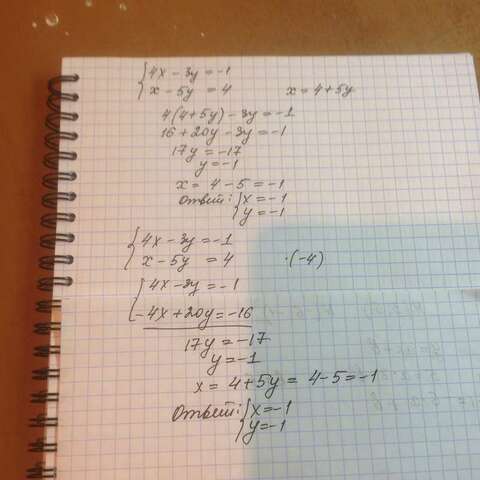 4x - 3y = -1
x - 5y = 4 x = 4 + 5y
4(4 + 5y) - 3y = -1
16 + 20y - 3y = -1
17y = -17
y = -1
x = 4 - 5 = -1
Ответ: { x = -1
y = -1
4x - 3y = -1
x - 5y = 4 ·(-4)
4x - 3y = -1
-4x + 20y = -16
17y = -17
y = -1
x = 4 + 5y = 4 - 5 = -1
Ответ: { x = -1
y = -1